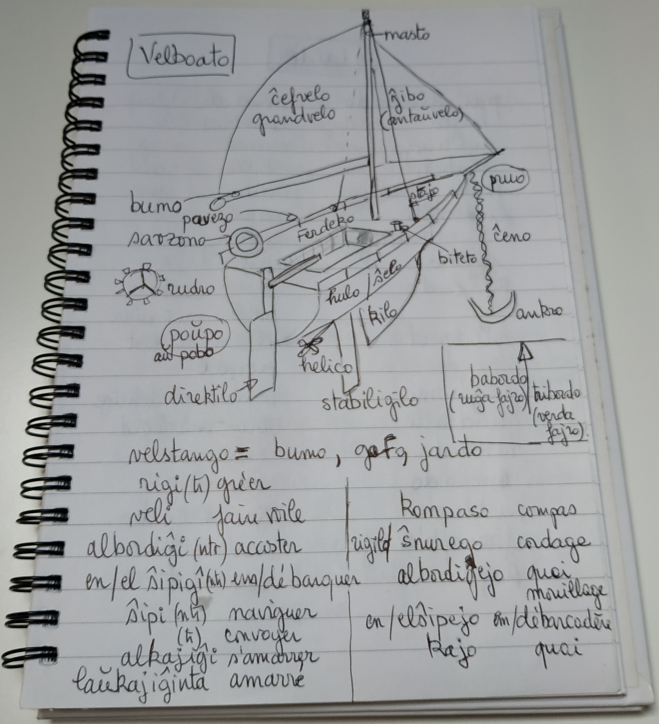 Velboato
masto
ĉefvelo
grandvelo
ĝibo
(antaŭvelo)
pruo
bumo
pavezo
savzono
ferdeko
stajo
ĉeno
biteto
rudro
hulo
ŝelo
kilo
ankro
poŭpo
aŭ pobo
helico
direktilo
stabiligilo
babordo
(ruĝa fajro)
tribordo
(verda
fajro)
velstango = bumo, gafo, jardo
rigi (tr) gréer
veli faire voile
albordiĝi (ntr) accoster
en/el ŝipiĝi (ntr) em/débarquer
ŝipi (ntr) naviguer
(tr) envoyer
alkajiĝi s'amarrer
laŭkajiĝinta amarre
kompaso compas
rigilo ŝnurego cordage
albordiĝejo quai
mouillage
en/elŝipejo em/débarcadère
kajo quai